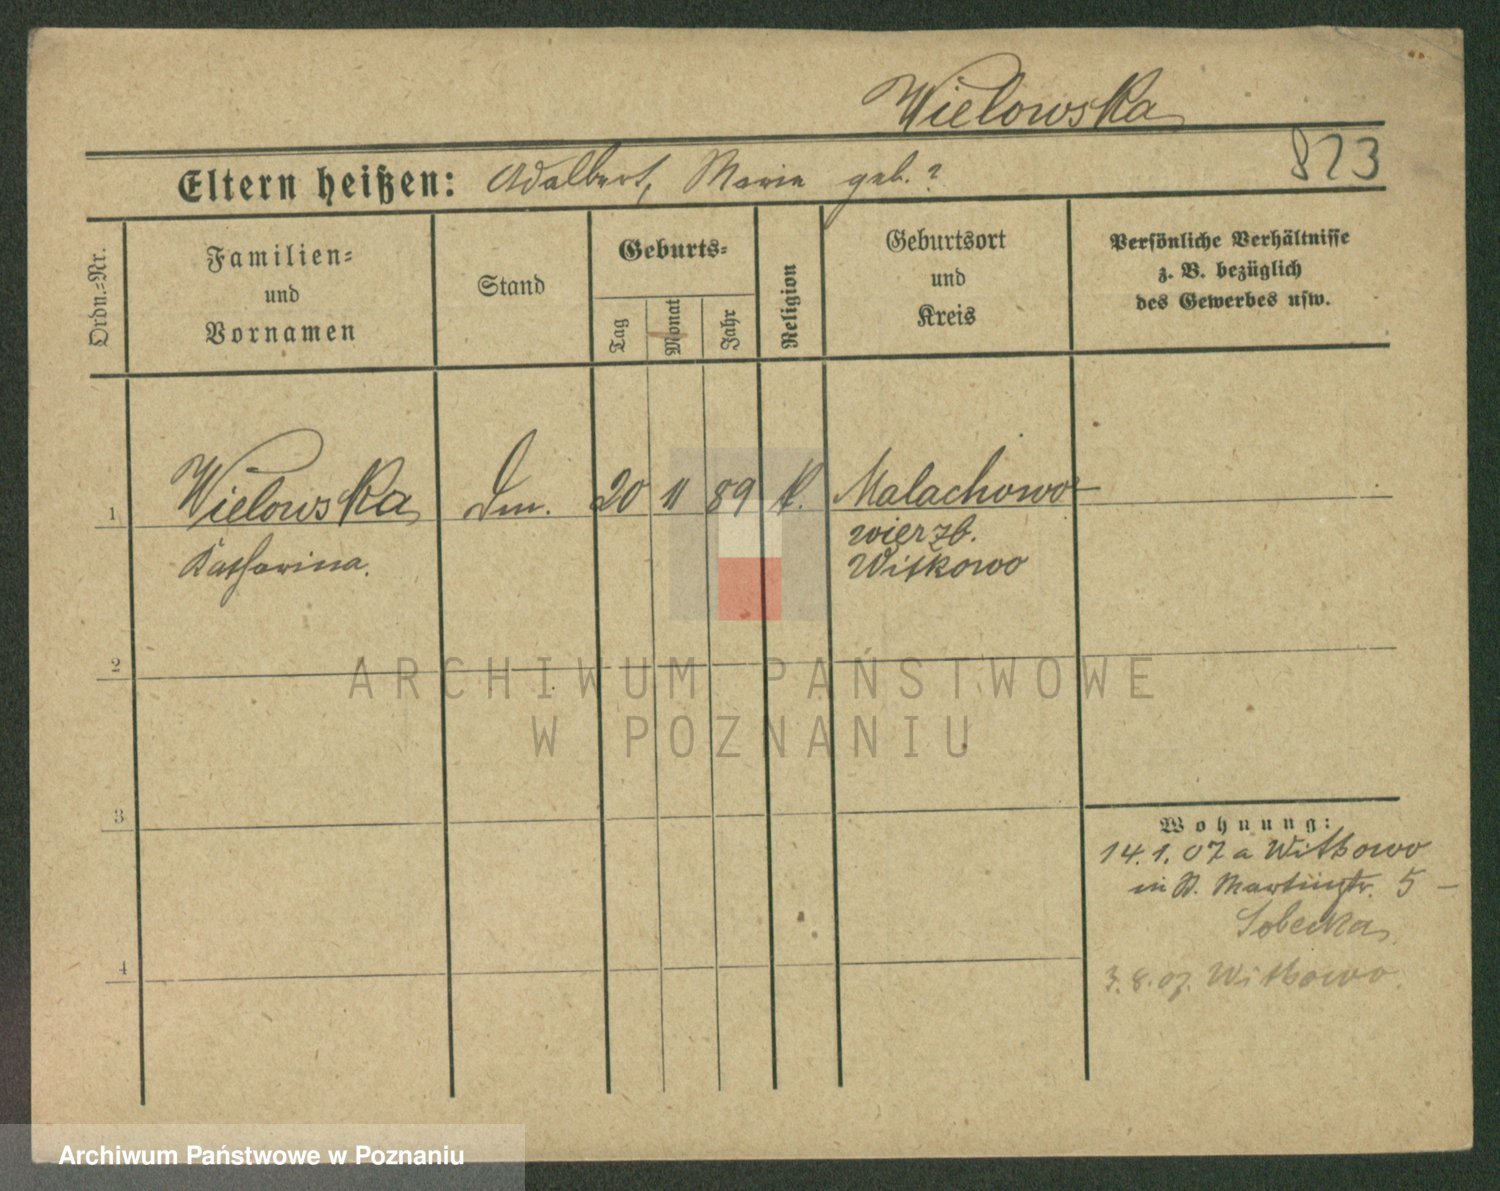 Wielowska
823
Eltern heißen: Adalbert, Marie geb. ?
Ordn.=Nr.
Familien=
und
Vornamen
Stand
Geburts=
Tag
Monat
Jahr
Religion
Geburtsort
und
Kreis
Persönliche Verhältnisse
z. B. bezüglich
des Gewerbes usw.
1
Wielowska
Katharina.
Dm.
20
11
89
k.
Malachowo
wierzb.
Witkowo
2
3
4
Wohnung:
14.1.07 a Witkowo
in St. Martinstr. 5 –
Sobecka
3.8.07. Witkowo.
ARCHIWUM PAŃSTWOWE
W POZNANIU
Archiwum Państwowe w Poznaniu